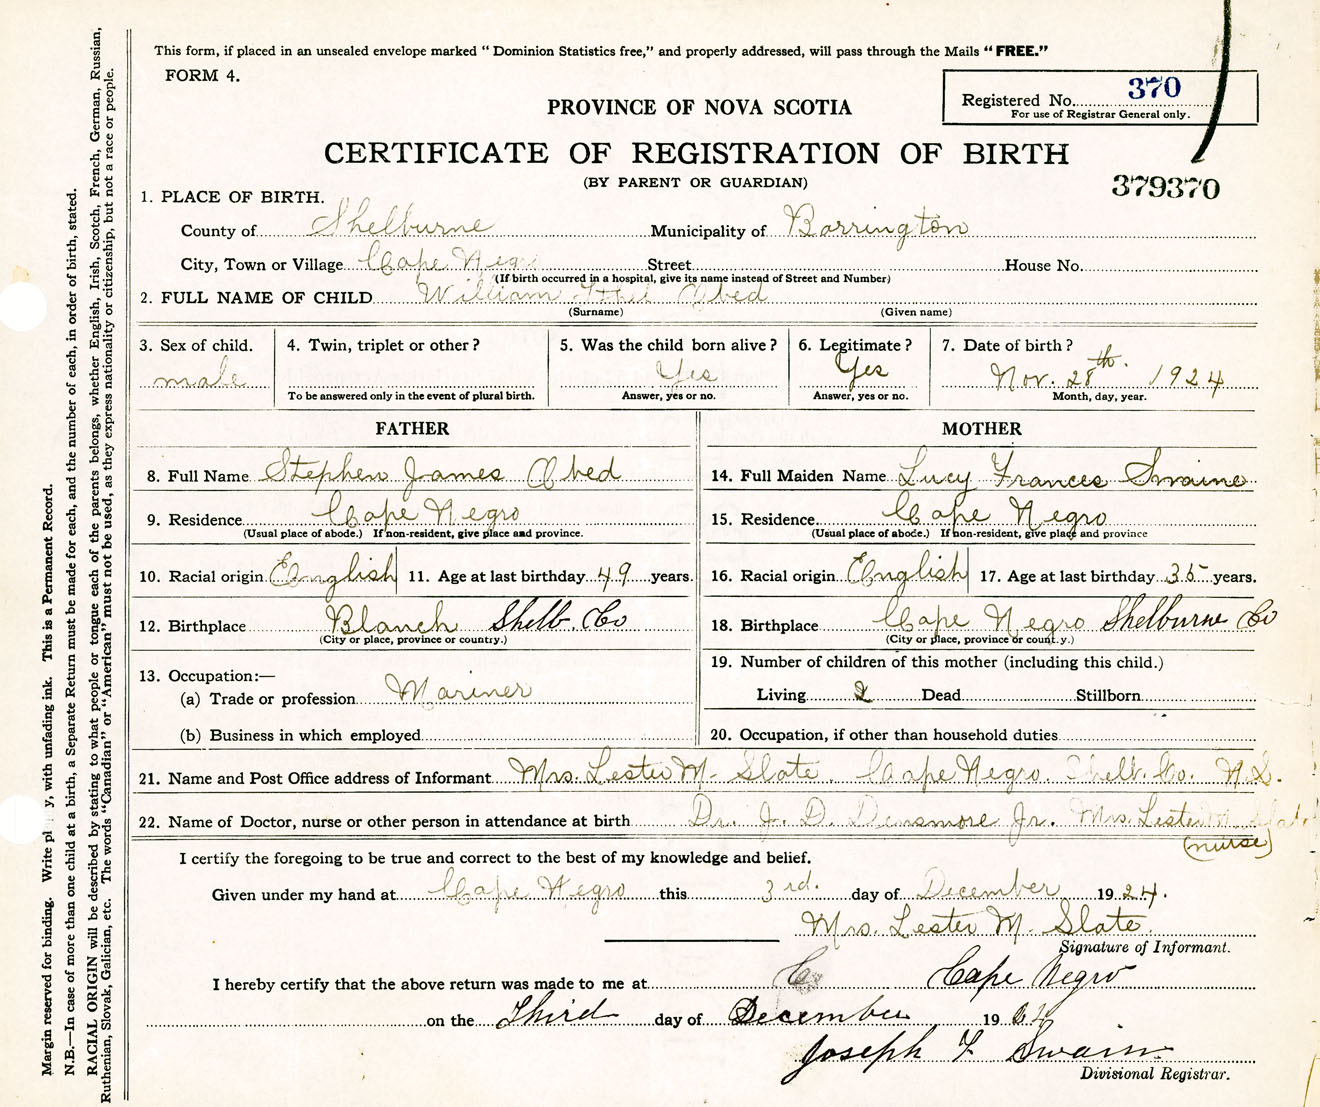 This form, if placed in an unsealed envelope marked "Dominion Statistics free," and properly addressed, will pass through the Mails "FREE."
FORM 4.
Registered No. 370
For use of Registrar General only.
PROVINCE OF NOVA SCOTIA
CERTIFICATE OF REGISTRATION OF BIRTH
(BY PARENT OR GUARDIAN)
379370
1. PLACE OF BIRTH.
County of Shelburne Municipality of Barrington
City, Town or Village Cape Negro Street House No.
(If birth occurred in a hospital, give its name instead of Street and Number)
2. FULL NAME OF CHILD William Obed
(Surname) (Given name)
3. Sex of child. 4. Twin, triplet or other? 5. Was the child born alive? 6. Legitimate? 7. Date of birth?
male Yes Yes Nov. 28th. 1924
To be answered only in the event of plural birth. Answer, yes or no. Answer, yes or no. Month, day, year.
FATHER MOTHER
8. Full Name Stephen James Obed 14. Full Maiden Name Lucy Frances Swaine
9. Residence Cape Negro 15. Residence Cape Negro
(Usual place of abode.) If non-resident, give place and province. (Usual place of abode.) If non-resident, give place and province
10. Racial origin English 11. Age at last birthday 49 years. 16. Racial origin English 17. Age at last birthday 35 years.
12. Birthplace Blanch Shelb. Co 18. Birthplace Cape Negro Shelburne Co
(City or place, province or country.) (City or place, province or country.)
19. Number of children of this mother (including this child.)
13. Occupation:—
(a) Trade or profession Mariner Living 2 Dead Stillborn
(b) Business in which employed 20. Occupation, if other than household duties
21. Name and Post Office address of Informant Mrs. Lester M. Slate Cape Negro. Shelb. Co. N.S.
22. Name of Doctor, nurse or other person in attendance at birth Dr. J. D. Densmore Jr. Mrs. Lester M. Slate
(nurse)
I certify the foregoing to be true and correct to the best of my knowledge and belief.
Given under my hand at Cape Negro this 3rd. day of December 1924.
Mrs. Lester M. Slate
Signature of Informant.
I hereby certify that the above return was made to me at C Cape Negro
on the Third day of December 19
Joseph F Swain
Divisional Registrar.
Margin reserved for binding. Write y, with unfading ink. This is a Permanent Record.
N.B.—In case of more than one child at a birth, a Separate Return must be made for each, and the number of each, in order of birth, stated.
RACIAL ORIGIN will be described by stating to what people or tongue each of the parents belongs, whether English, Irish, Scotch, French, German, Russian,
Ruthenian, Slovak, Galician, etc. The words "Canadian" or "American" must not be used, as they express nationality or citizenship, but not a race or people.